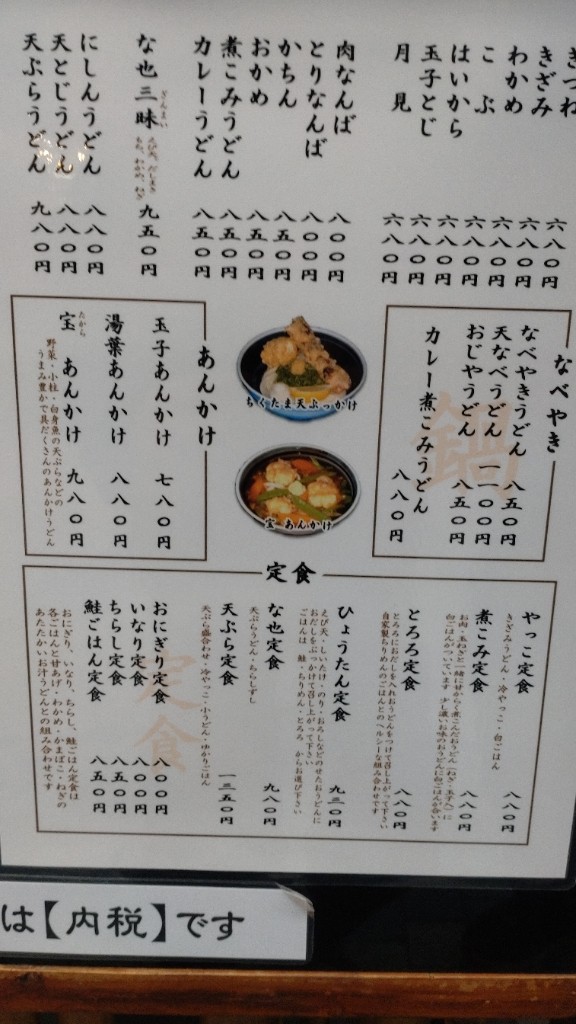 きつね 六八〇円
きざみ 六八〇円
わかめ 六八〇円
こぶ 六八〇円
はいから 六八〇円
玉子とじ 六八〇円
月見 六八〇円
肉なんば 八〇〇円
とりなんば 八〇〇円
かちん 八五〇円
おかめ 八五〇円
煮こみうどん 八五〇円
カレーうどん 八五〇円
な也三昧 九五〇円
ざんまい
えび天、だしまき
もち、わかめ、ねぎ
にしんうどん 八八〇円
天とじうどん 八八〇円
天ぷらうどん 九八〇円
なべやき
鍋
なべやきうどん 八五〇円
天なべうどん 一一〇〇円
おじやうどん 八五〇円
カレー煮こみうどん 八八〇円
ちくたま天ぶっかけ
宝 あんかけ
あんかけ
玉子あんかけ 七八〇円
湯葉あんかけ 八八〇円
宝 あんかけ 九八〇円
たから
野菜・小柱・白身魚の天ぷらなどの
うまみ豊かで具だくさんのあんかけうどん
定食
やっこ定食 八八〇円
きざみうどん・冷やっこ・白ごはん
煮こみ定食 八八〇円
お肉・玉ねぎと一緒に甘からく煮こんだおうどん（ねぎ・玉子入）に
白ごはんがついています 少し濃いお味のおうどんに白ごはんが合います
とろろ定食 八八〇円
とろろにおだしを入れおうどんをつけて召し上がって下さい
自家製ちりめんのごはんとのヘルシーな組み合わせです
ひょうたん定食 九三〇円
えび天・しいたけ・のり・おろしなどのせたおうどんに
おだしをぶっかけて召し上がって下さい
ごはんは 鮭・ちりめん・とろろ からお選び下さい
な也定食 九八〇円
天ぷらうどん・ちらしずし
天ぷら定食 一三五〇円
天ぷら盛合わせ・冷やっこ・小うどん・ゆかりごはん
定食
おにぎり定食 八〇〇円
いなり定食 八〇〇円
ちらし定食 八五〇円
鮭ごはん定食 八五〇円
おにぎり、いなり、ちらし、鮭ごはん定食は
各ごはんと甘あげ・わかめ・かまぼこ・ねぎの
あたたかいお汁うどんとの組み合わせです
は【内税】です